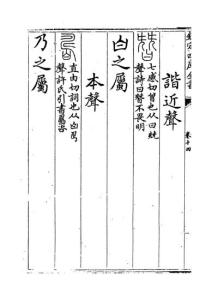 欽定四庫全書
諧近聲
七感切曾也从曰兓
聲詩曰朁不畏明
白之屬
本聲
直由切詞也从白
聲許氏引書咨
乃之屬